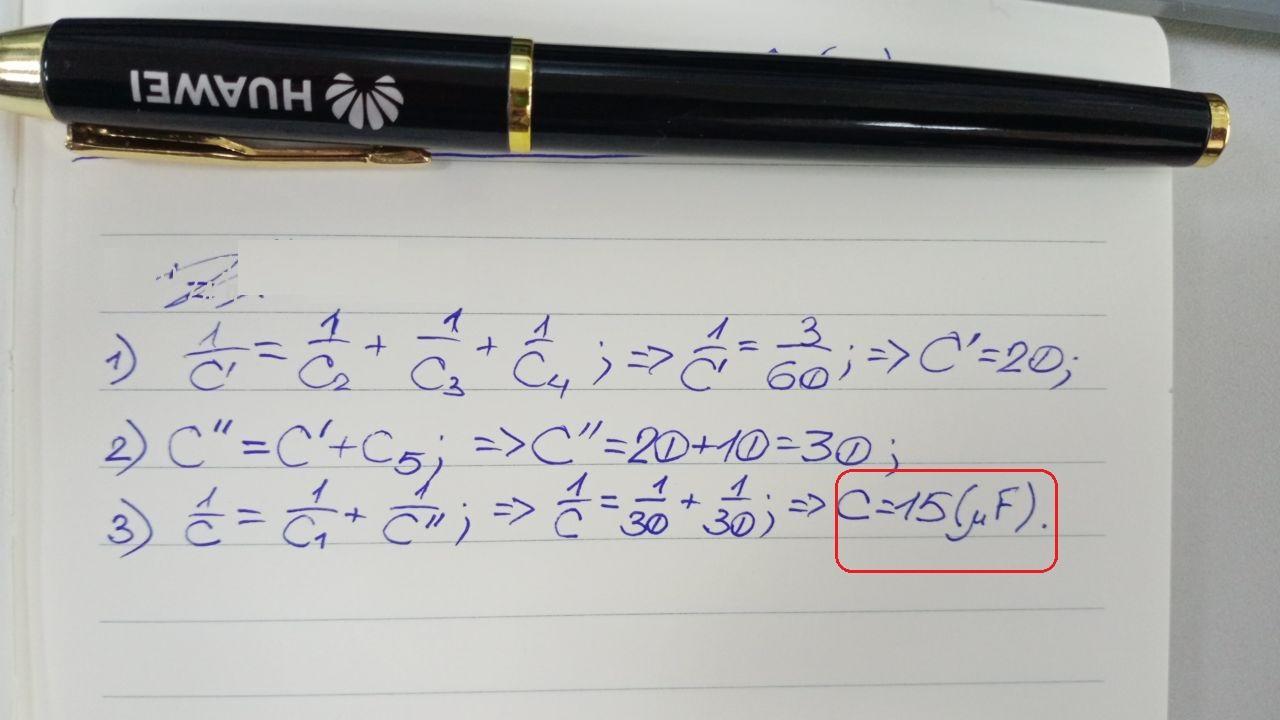 HUAWEI
1) 1/C' = 1/C₂ + 1/C₃ + 1/C₄ ; => 1/C' = 3/60 ; => C' = 20;
2) C'' = C' + C₅; => C'' = 20+10=30 ;
3) 1/C = 1/C₁ + 1/C'' ; => 1/C = 1/30 + 1/30 ; => C=15(μF).